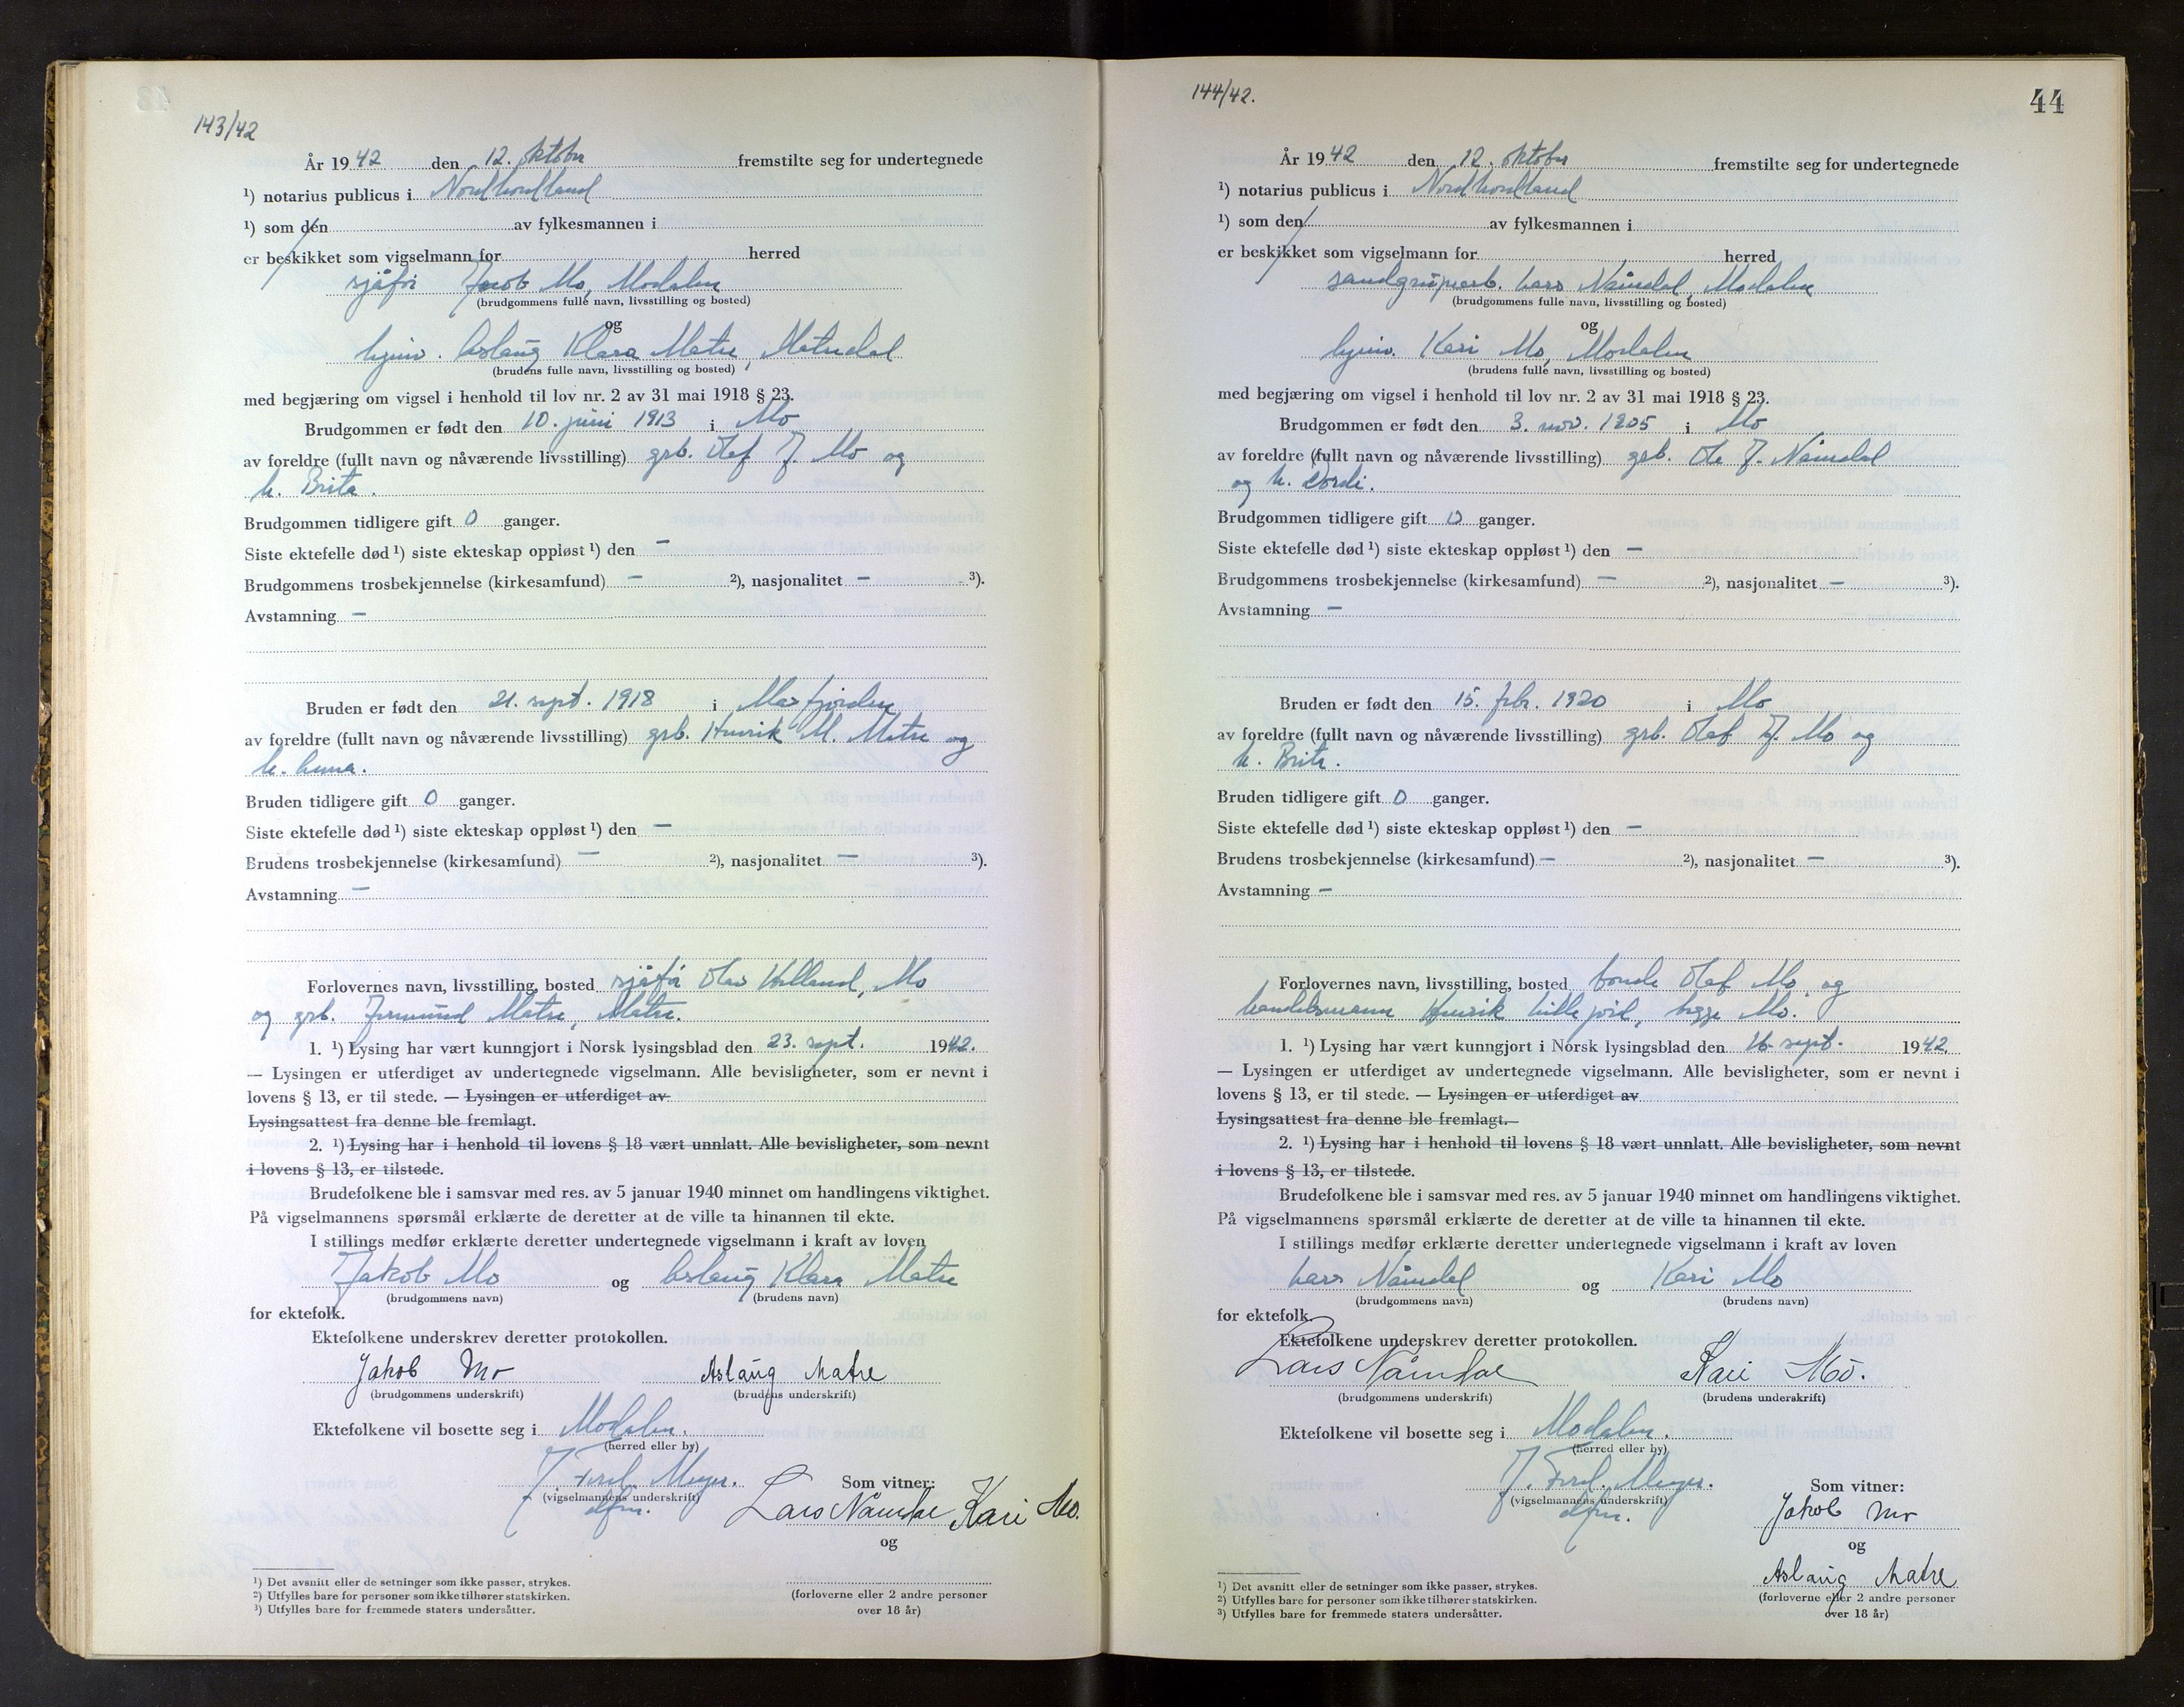 143/42
År 1942 den 12. oktober fremstilte seg for undertegnede
¹) notarius publicus i Nordhordland
¹) som den av fylkesmannen i
er beskikket som vigselmann for herred
sjåfør Jacob Mo, Modalen
(brudgommens fulle navn, livsstilling og bosted)
og
hjemv. Aslaug Klara Matre, Matredal
(brudens fulle navn, livsstilling og bosted)
med begjæring om vigsel i henhold til lov nr. 2 av 31 mai 1918 § 23.
Brudgommen er født den 10. juni 1913 i Mo
av foreldre (fullt navn og nåværende livsstilling) grb. Olaf J. Mo og
h. Brita.
Brudgommen tidligere gift 0 ganger.
Siste ektefelle død ¹) siste ekteskap oppløst ¹) den —
Brudgommens trosbekjennelse (kirkesamfund) — ²), nasjonalitet — ³).
Avstamning —
Bruden er født den 21. sept. 1918 i Masfjorden
av foreldre (fullt navn og nåværende livsstilling) grb. Henrik M. Matre og
h. Anna.
Bruden tidligere gift 0 ganger.
Siste ektefelle død ¹) siste ekteskap oppløst ¹) den —
Brudens trosbekjennelse (kirkesamfund) — ²), nasjonalitet — ³).
Avstamning —
Forlovernes navn, livsstilling, bosted sjåfør Olav Helland, Mo
og grb. Jermund Matre, Matre.
1. ¹) Lysing har vært kunngjort i Norsk lysingsblad den 23. sept. 1942.
— Lysingen er utferdiget av undertegnede vigselmann. Alle bevisligheter, som er nevnt i
lovens § 13, er til stede. — Lysingen er utferdiget av
Lysingsattest fra denne ble fremlagt.
2. ¹) Lysing har i henhold til lovens § 18 vært unnlatt. Alle bevisligheter, som nevnt
i lovens § 13, er tilstede.
Brudefolkene ble i samsvar med res. av 5 januar 1940 minnet om handlingens viktighet.
På vigselmannens spørsmål erklærte de deretter at de ville ta hinannen til ekte.
I stillings medfør erklærte deretter undertegnede vigselmann i kraft av loven
Jakob Mo og Aslaug Klara Matre
(brudgommens navn) (brudens navn)
for ektefolk.
Ektefolkene underskrev deretter protokollen.
Jakob Mo Aslaug Matre
(brudgommens underskrift) (brudens underskrift)
Ektefolkene vil bosette seg i Modalen.
(herred eller by)
J. Ferd. Meyer.
(vigselmannens underskrift)
dfm.
Som vitner:
Lars Nåmdal Kari Mo.
og
(forloverne eller 2 andre personer
over 18 år)
¹) Det avsnitt eller de setninger som ikke passer, strykes.
²) Utfylles bare for personer som ikke tilhører statskirken.
³) Utfylles bare for fremmede staters undersåtter.
144/42.
44
År 1942 den 12. oktober fremstilte seg for undertegnede
¹) notarius publicus i Nordhordland
¹) som den av fylkesmannen i
er beskikket som vigselmann for herred
sandgrusarb. Lars Nåmdal, Modalen
(brudgommens fulle navn, livsstilling og bosted)
og
hjemv. Kari Mo, Modalen
(brudens fulle navn, livsstilling og bosted)
med begjæring om vigsel i henhold til lov nr. 2 av 31 mai 1918 § 23.
Brudgommen er født den 3. nov. 1905 i Mo
av foreldre (fullt navn og nåværende livsstilling) grb. Ole J. Nåmdal
og h. Dordi.
Brudgommen tidligere gift 0 ganger.
Siste ektefelle død ¹) siste ekteskap oppløst ¹) den —
Brudgommens trosbekjennelse (kirkesamfund) — ²), nasjonalitet — ³).
Avstamning —
Bruden er født den 15. febr. 1920 i Mo
av foreldre (fullt navn og nåværende livsstilling) grb. Olaf J. Mo og
h. Brita.
Bruden tidligere gift 0 ganger.
Siste ektefelle død ¹) siste ekteskap oppløst ¹) den —
Brudens trosbekjennelse (kirkesamfund) — ²), nasjonalitet — ³).
Avstamning —
Forlovernes navn, livsstilling, bosted bonde Olaf Mo, og
handelsmann Henrik Lillejord, begge Mo.
1. ¹) Lysing har vært kunngjort i Norsk lysingsblad den 16. sept. 1942.
— Lysingen er utferdiget av undertegnede vigselmann. Alle bevisligheter, som er nevnt i
lovens § 13, er til stede. — Lysingen er utferdiget av
Lysingsattest fra denne ble fremlagt.
2. ¹) Lysing har i henhold til lovens § 18 vært unnlatt. Alle bevisligheter, som nevnt
i lovens § 13, er tilstede.
Brudefolkene ble i samsvar med res. av 5 januar 1940 minnet om handlingens viktighet.
På vigselmannens spørsmål erklærte de deretter at de ville ta hinannen til ekte.
I stillings medfør erklærte deretter undertegnede vigselmann i kraft av loven
Lars Nåmdal og Kari Mo
(brudgommens navn) (brudens navn)
for ektefolk.
Ektefolkene underskrev deretter protokollen.
Lars Nåmdal Kari Mo.
(brudgommens underskrift) (brudens underskrift)
Ektefolkene vil bosette seg i Modalen.
(herred eller by)
J. Ferd. Meyer.
(vigselmannens underskrift)
dfm.
Som vitner:
Jakob Mo
og
Aslaug Matre
(forloverne eller 2 andre personer
over 18 år)
¹) Det avsnitt eller de setninger som ikke passer, strykes.
²) Utfylles bare for personer som ikke tilhører statskirken.
³) Utfylles bare for fremmede staters undersåtter.